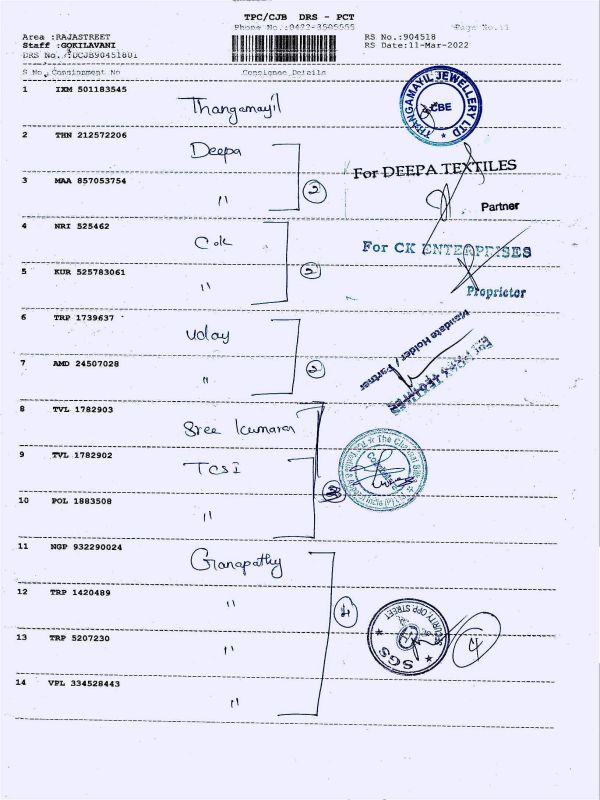 TPC/CJB DRS - PCT
Phone No.:0422-3505555
Page No.:1
Area :RAJASTREET
RS No.:904518
Staff :GOKILAVANI
RS Date:11-Mar-2022
DRS No.:DCJB90451801
S No. Consignment No Consignee Details
1 IXM 501183545
Thangamayil
THANGAMAYIL JEWELLERY LTD
CBE
2 THN 212572206
Deepa
For DEEPA TEXTILES
3 MAA 857053754
"
2
Partner
4 NRI 525462
Cok
For CK ENTERPRISES
5 KUR 525783061
"
2
Proprietor
6 TRP 1739637
Uday
Mandate Holder / Partner
7 AMD 24507028
"
2
8 TVL 1782903
Sree Kumaran
9 TVL 1782902
TCSI
The Chennai
10 POL 1883508
"
11 NGP 932290024
Ganapathy
12 TRP 1420489
"
4
SECURITY OPP STREET
SGS
4
13 TRP 5207230
"
14 VPL 334528443
"